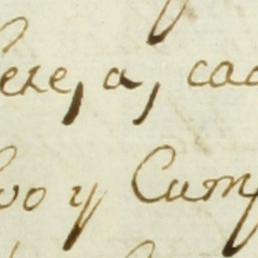 ere, a, cad
vo y Cump